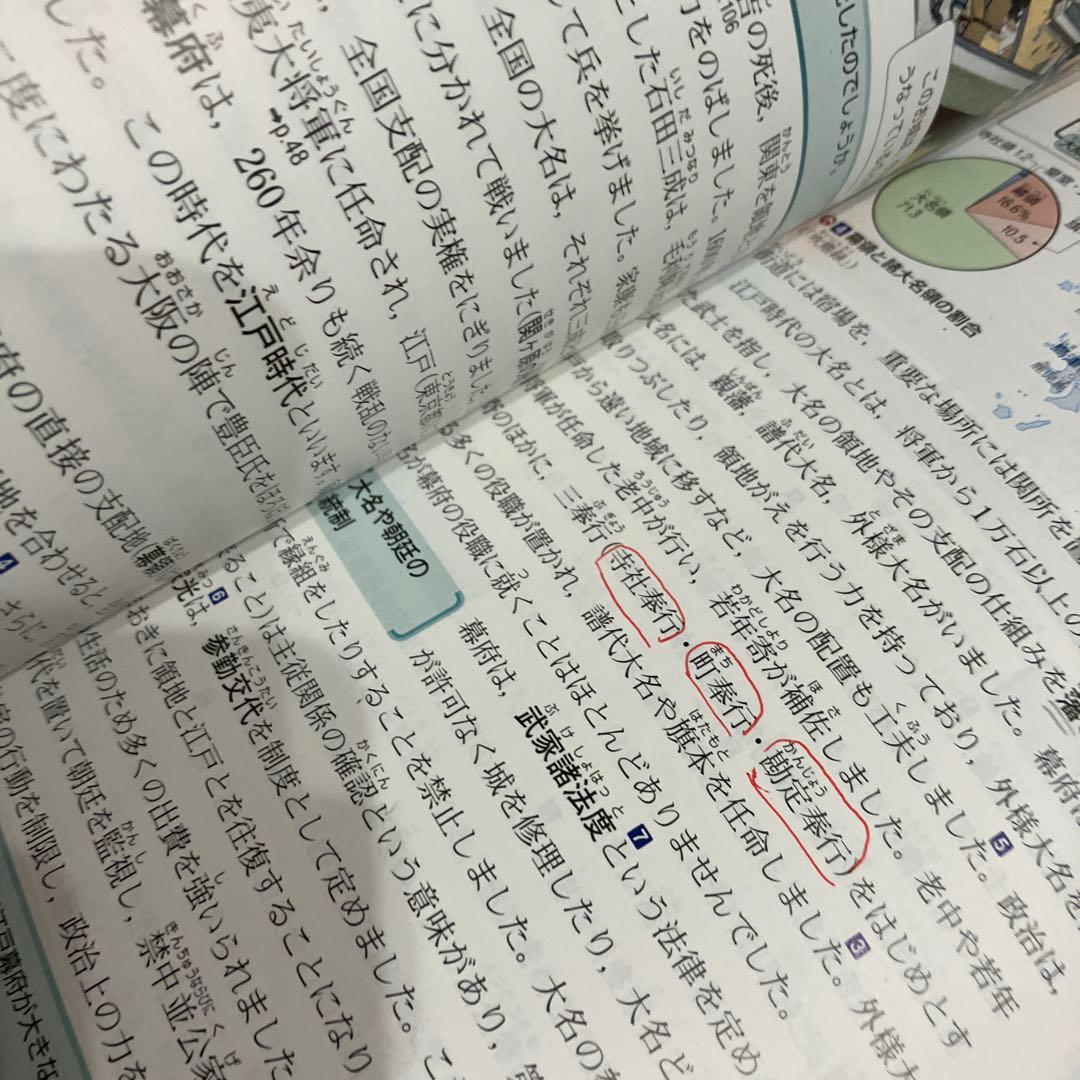 としたのでしょうか。
吉の死後，関東を領地と
106
力をのばしました。
とした石田三成は，毛利
して兵を挙げました。家康
全国の大名は，それぞれ三成
に分かれて戦いました（関ヶ原
全国支配の実権をにぎりました
夷大将軍に任命され，江戸（東京都
➡p.48
幕府は，260年余りも続く戦乱のない
した。この時代を江戸時代といいます
二度にわたる大阪の陣で豊臣氏をほろ
府の直接の支配地
地を合わせると
4
さらに
大名領
71.3
幕領
16.6%
10.5
4 幕領と諸大名領の割合
街道には宿場を，重要な場所には関所を
江戸時代の大名とは，将軍から1万石以上の
た武士を指し，大名の領地やその支配の仕組みを藩
大名には，親藩，譜代大名，外様大名がいました。幕府は
取りつぶしたり，領地がえを行う力を持っており，外様大名を
から遠い地域に移すなど，大名の配置も工夫しました。5 政治は，
将軍が任命した老中が行い，若年寄が補佐しました。老中や若年
のほかに，三奉行（寺社奉行・町奉行・勘定奉行）をはじめとす
る多くの役職が置かれ，譜代大名や旗本を任命しました。3 外様大
名が幕府の役職に就くことはほとんどありませんでした。
大名や朝廷の
統制
幕府は，武家諸法度7という法律を定め
が許可なく城を修理したり，大名ど
で縁組をしたりすることを禁止しました。大名の
ること）は主従関係の確認という意味があり，
光は，6 参勤交代を制度として定めました。
おきに領地と江戸とを往復することになり
生活のため多くの出費を強いられました
代を置いて朝廷を監視し，禁中並公家
の行動を制限し，政治上の力を
江戸幕府が大きな